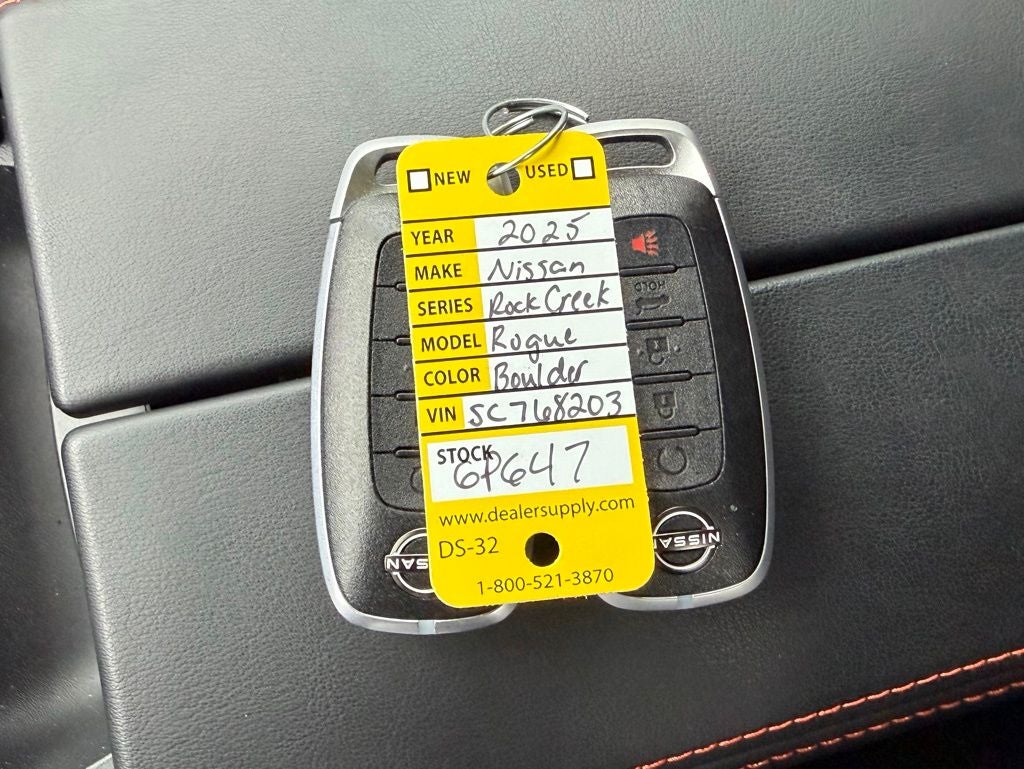 NEW USED
YEAR 2025
MAKE Nissan
SERIES Rock Creek
MODEL Rogue
COLOR Boulder
VIN SC768203
STOCK 6P647
www.dealersupply.com
DS-32
1-800-521-3870
HOLD
NISSAN
NISSAN